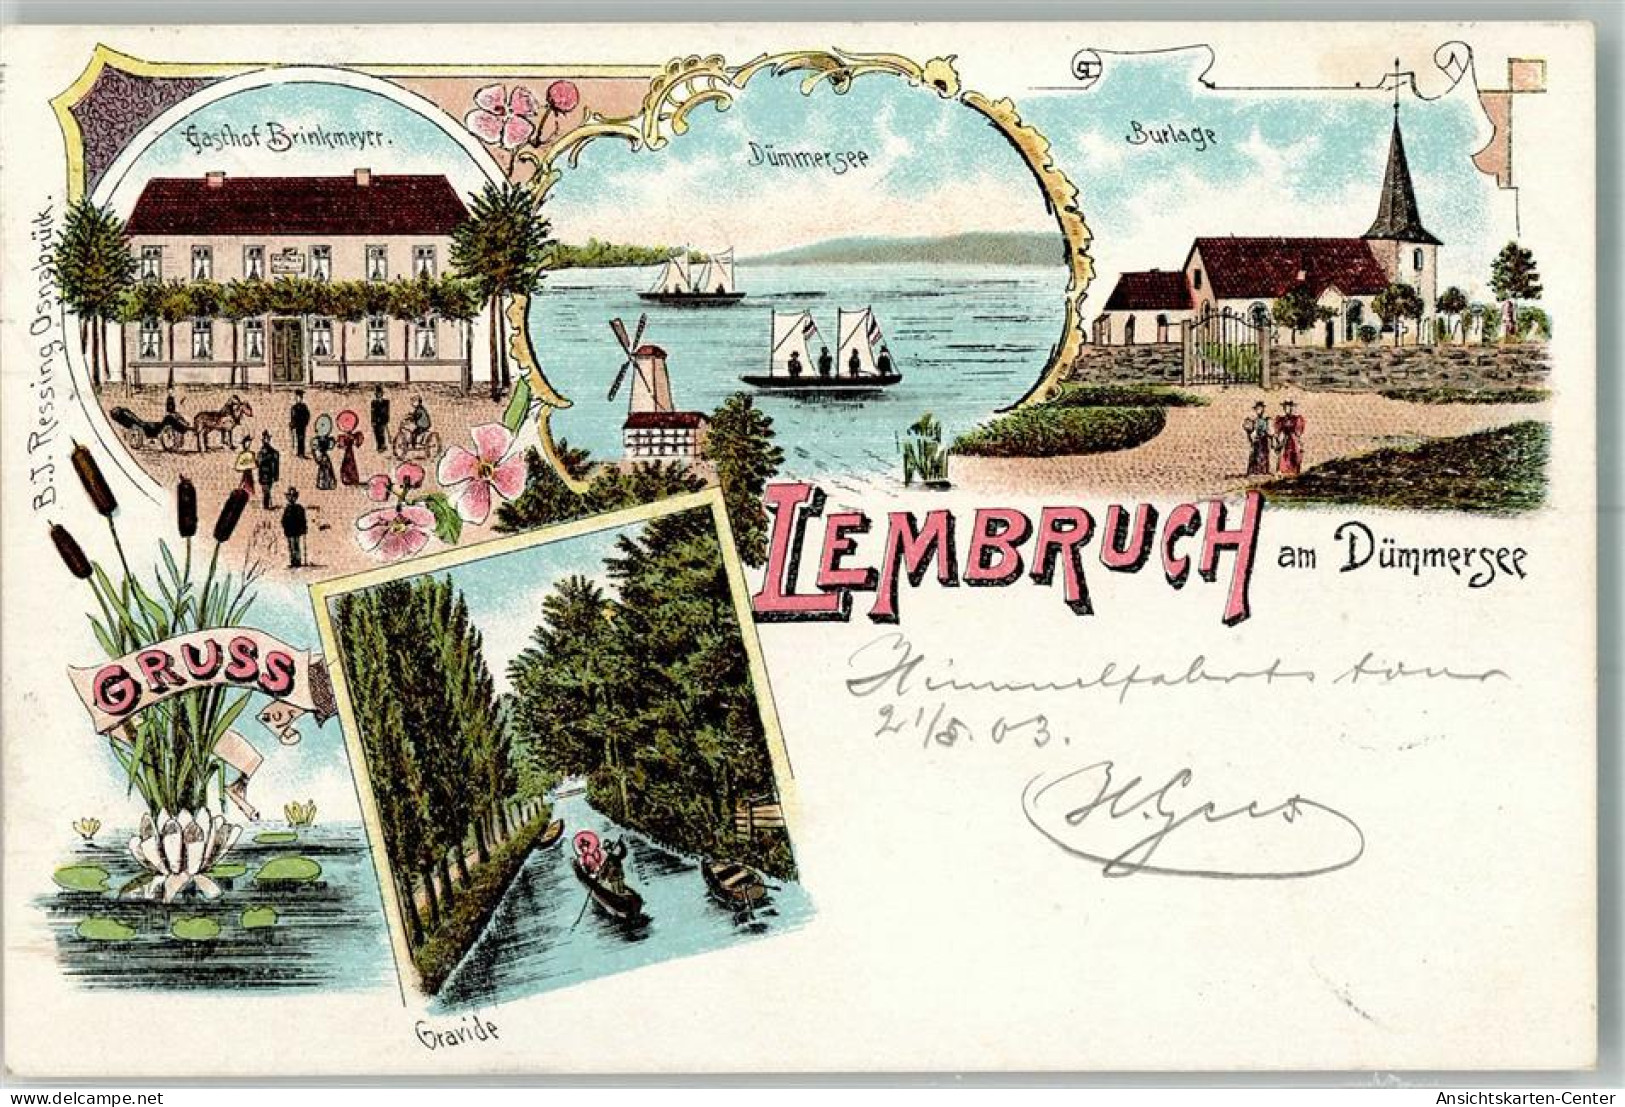 Gasthof Brinkmeyer.
Dümmersee
Burlage
B.J. Ressing, Osnabrück.
LEMBRUCH am Dümmersee
GRUSS
aus
Himmelfahrtstour
21/5.03.
Gravide
Ansichtskarten-Center